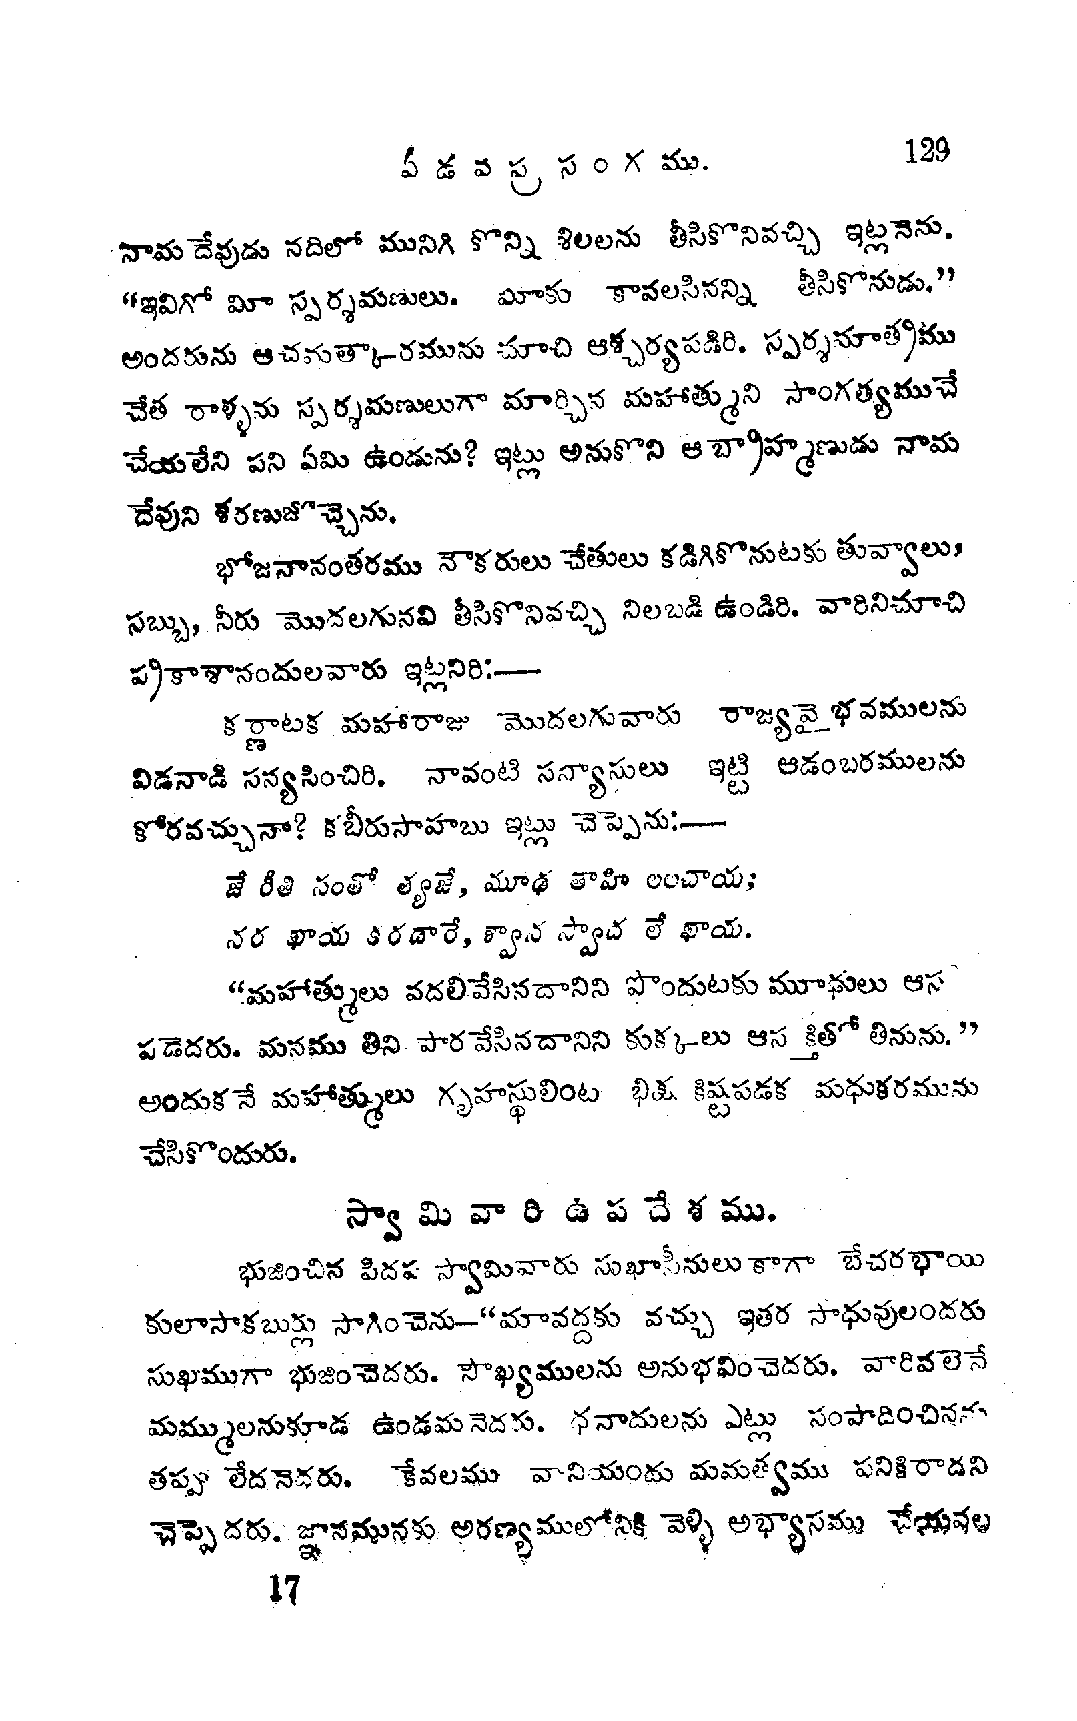 ఏడవప్రసంగము. 129
నామదేవుడు నదిలో మునిగి కొన్ని శిలలను తీసికొనివచ్చి ఇట్లనెను.
“ఇవిగో మీ స్పర్శమణులు. మీకు కావలసినన్ని తీసికోనుడు.”
అందరును ఆచమత్కారమును చూచి ఆశ్చర్యపడిరి. స్పర్శమాత్రము
చేత రాళ్ళను స్పర్శమణులుగా మార్చిన మహాత్ముని సాంగత్యముచే
చేయలేని పని ఏమి ఉండును? ఇట్లు అనుకొని ఆ బ్రాహ్మణుడు నామ
దేవుని శరణుజొచ్చెను.
భోజనానంతరము నౌకరులు చేతులు కడిగికొనుటకు తువ్వాలు,
సబ్బు, నీరు మొదలగునవి తీసికొనివచ్చి నిలబడి ఉండిరి. వారినిచూచి
ప్రకాశానందులవారు ఇట్లనిరి:—
కర్ణాటక మహారాజు మొదలగువారు రాజ్యవైభవములను
విడనాడి సన్యసించిరి. నావంటి సన్యాసులు ఇట్టి ఆడంబరములను
కోరవచ్చునా? కబీరుసాహబు ఇట్లు చెప్పెను:—
జే రీతి సంతో త్యజే, మూఢ తాహి లలచాయ;
నర ఖాయ కరడారే, శ్వాన స్వాద లే ఖాయ.
“మహాత్ములు వదలివేసినదానిని పొందుటకు మూఢులు ఆస
పడెదరు. మనము తిని పారవేసినదానిని కుక్కలు ఆసక్తితో తినును.”
అందుకనే మహాత్ములు గృహస్థులింట భిక్ష కిష్టపడక మధుకరమును
చేసికొందురు.
స్వామివారిఉపదేశము.
భుజించిన పిదప స్వామివారు సుఖాసీనులు కాగా బేచరభాయి
కులాసాకబుర్లు సాగించెను—“మావద్దకు వచ్చు ఇతర సాధువులందరు
సుఖముగా భుజించెదరు. సౌఖ్యములను అనుభవించెదరు. వారివలెనే
మమ్ములనుకూడ ఉండమనెదరు. ధనాదులను ఎట్లు సంపాదించినను
తప్పు లేదనెదరు. కేవలము వానియందు మమత్వము పనికిరాదని
చెప్పెదరు. జ్ఞానమునకు అరణ్యములోనికి వెళ్ళి అభ్యాసము చేయవల
17